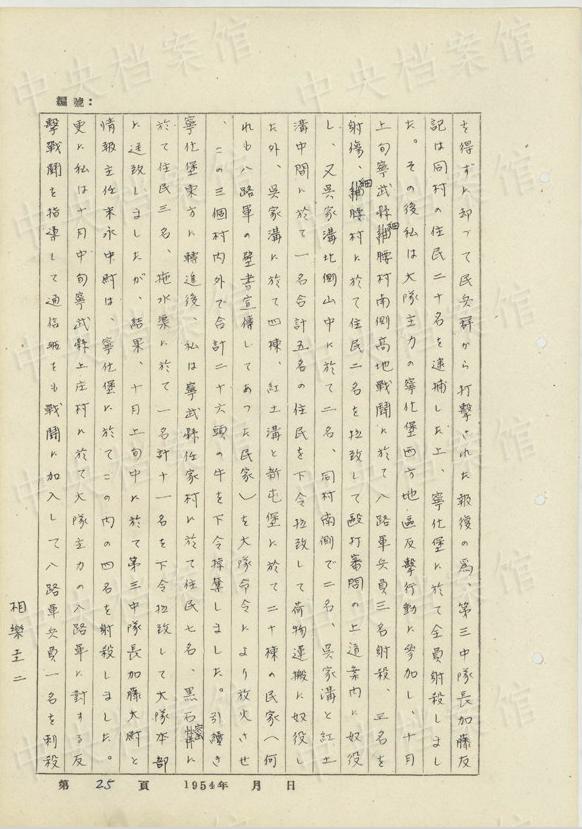 編號：
を得ずに却って民兵群から打撃された報復の為、第三中隊長加藤反
記は同村の住民二十名を逮捕した上、寧化堡に於て全員射殺しまし
た。その後私は大隊主力の寧化堡西方地区反撃行動に参加し、十月
上旬寧武縣細腰村南側高地戦闘に於て八路軍兵員三名射殺、三名を
射傷、細腰村に於て住民二名を拉致して殴打審問の上道案内に奴役
し、又吳家溝北側山中に於て二名、同村南側で二名、吳家溝と紅土
溝中間に於て一名合計五名の住民を下令拉致して荷物運搬に奴役し
た外、吳家溝に於て四棟、紅土溝と新屯堡に於て二十棟の民家（何
れも八路軍の壁書宣傳してあった民家）を大隊命令により放火させ
、この三個村内外で合計二十六頭の牛を下令掠奪しました。引續き
寧化堡東方に轉進後、私は寧武縣任家村に於て住民七名、黒石窰に
於て住民三名、拖水渠に於て一名計十一名を下令拉致して大隊本部
に送致しましたが、結果、十月上旬中に於て第三中隊長加藤大尉と
情報主任末永中尉は、寧化堡に於てこの内の四名を射殺しました。
更に私は十月中旬寧武縣上庄村に於て大隊主力の八路軍に対する反
撃戦闘を指導して通信班をも戦闘に加入して八路軍兵員一名を刺殺
相樂圭二
第 25 頁 1954年 月 日
中央档案馆